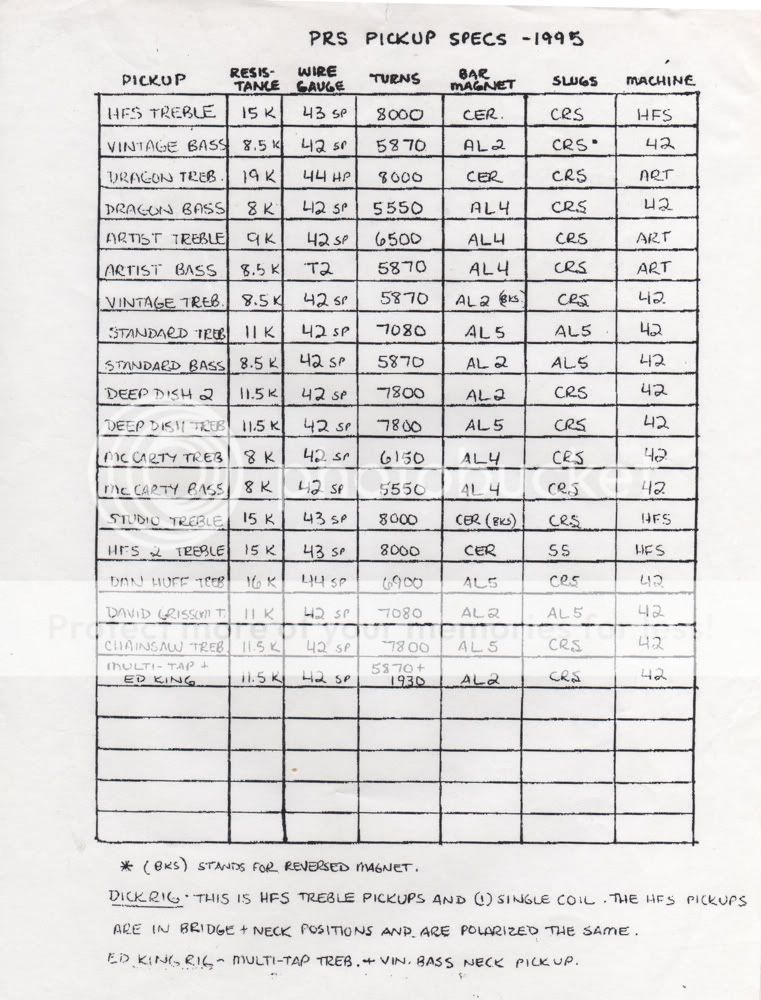 PRS PICKUP SPECS -1995
PICKUP RESIS-TANCE WIRE GAUGE TURNS BAR MAGNET SLUGS MACHINE
HFS TREBLE 15 K 43 SP 8000 CER. CRS HFS
VINTAGE BASS 8.5 K 42 SP 5870 AL2 CRS• 42
DRAGON TREB. 19 K 44 HP 8000 CER CRS ART
DRAGON BASS 8K 42 SP 5550 AL4 CRS 42
ARTIST TREBLE 9K 42 SP 6500 AL4 CRS ART
ARTIST BASS 8.5 K T2 5870 AL4 CRS ART
VINTAGE TREB. 8.5 K 42 SP 5870 AL2 (BKS) CRS 42
STANDARD TREB 11 K 42 SP 7080 AL5 AL5 42
STANDARD BASS 8.5 K 42 SP 5870 AL 2 AL5 42
DEEP DISH 2 11.5 K 42 SP 7800 AL2 CRS 42
DEEP DISH TREB 11.5 K 42 SP 7800 AL5 CRS 42
MCCARTY TREB 8 K 42 SP 6150 AL4 CRS 42
MCCARTY BASS 8 K 42 SP 5550 AL4 CRS 42
STUDIO TREBLE 15 K 43 SP 8000 CER (BKS) CRS HFS
HFS 2 TREBLE 15 K 43 SP 8000 CER SS HFS
DAN HUFF TREB 16 K 44 SP 6900 AL5 CRS 42
DAVID GRISSOM T 11 K 42 SP 7080 AL2 AL5 42
CHAINSAW TREB. 11.5 K 42 SP 7800 AL5 CRS 42
MULTI-TAP + ED KING 11.5 K 42 SP 5870+ 1930 AL2 CRS 42
* (BKS) STANDS FOR REVERSED MAGNET.
DICK RIG • THIS IS HFS TREBLE PICKUPS AND (1) SINGLE COIL. THE HFS PICKUPS
ARE IN BRIDGE + NECK POSITIONS AND ARE POLARIZED THE SAME.
ED KING RIG - MULTI-TAP TREB. + VIN. BASS NECK PICKUP.
photobucket
Protect more of your memories for less!